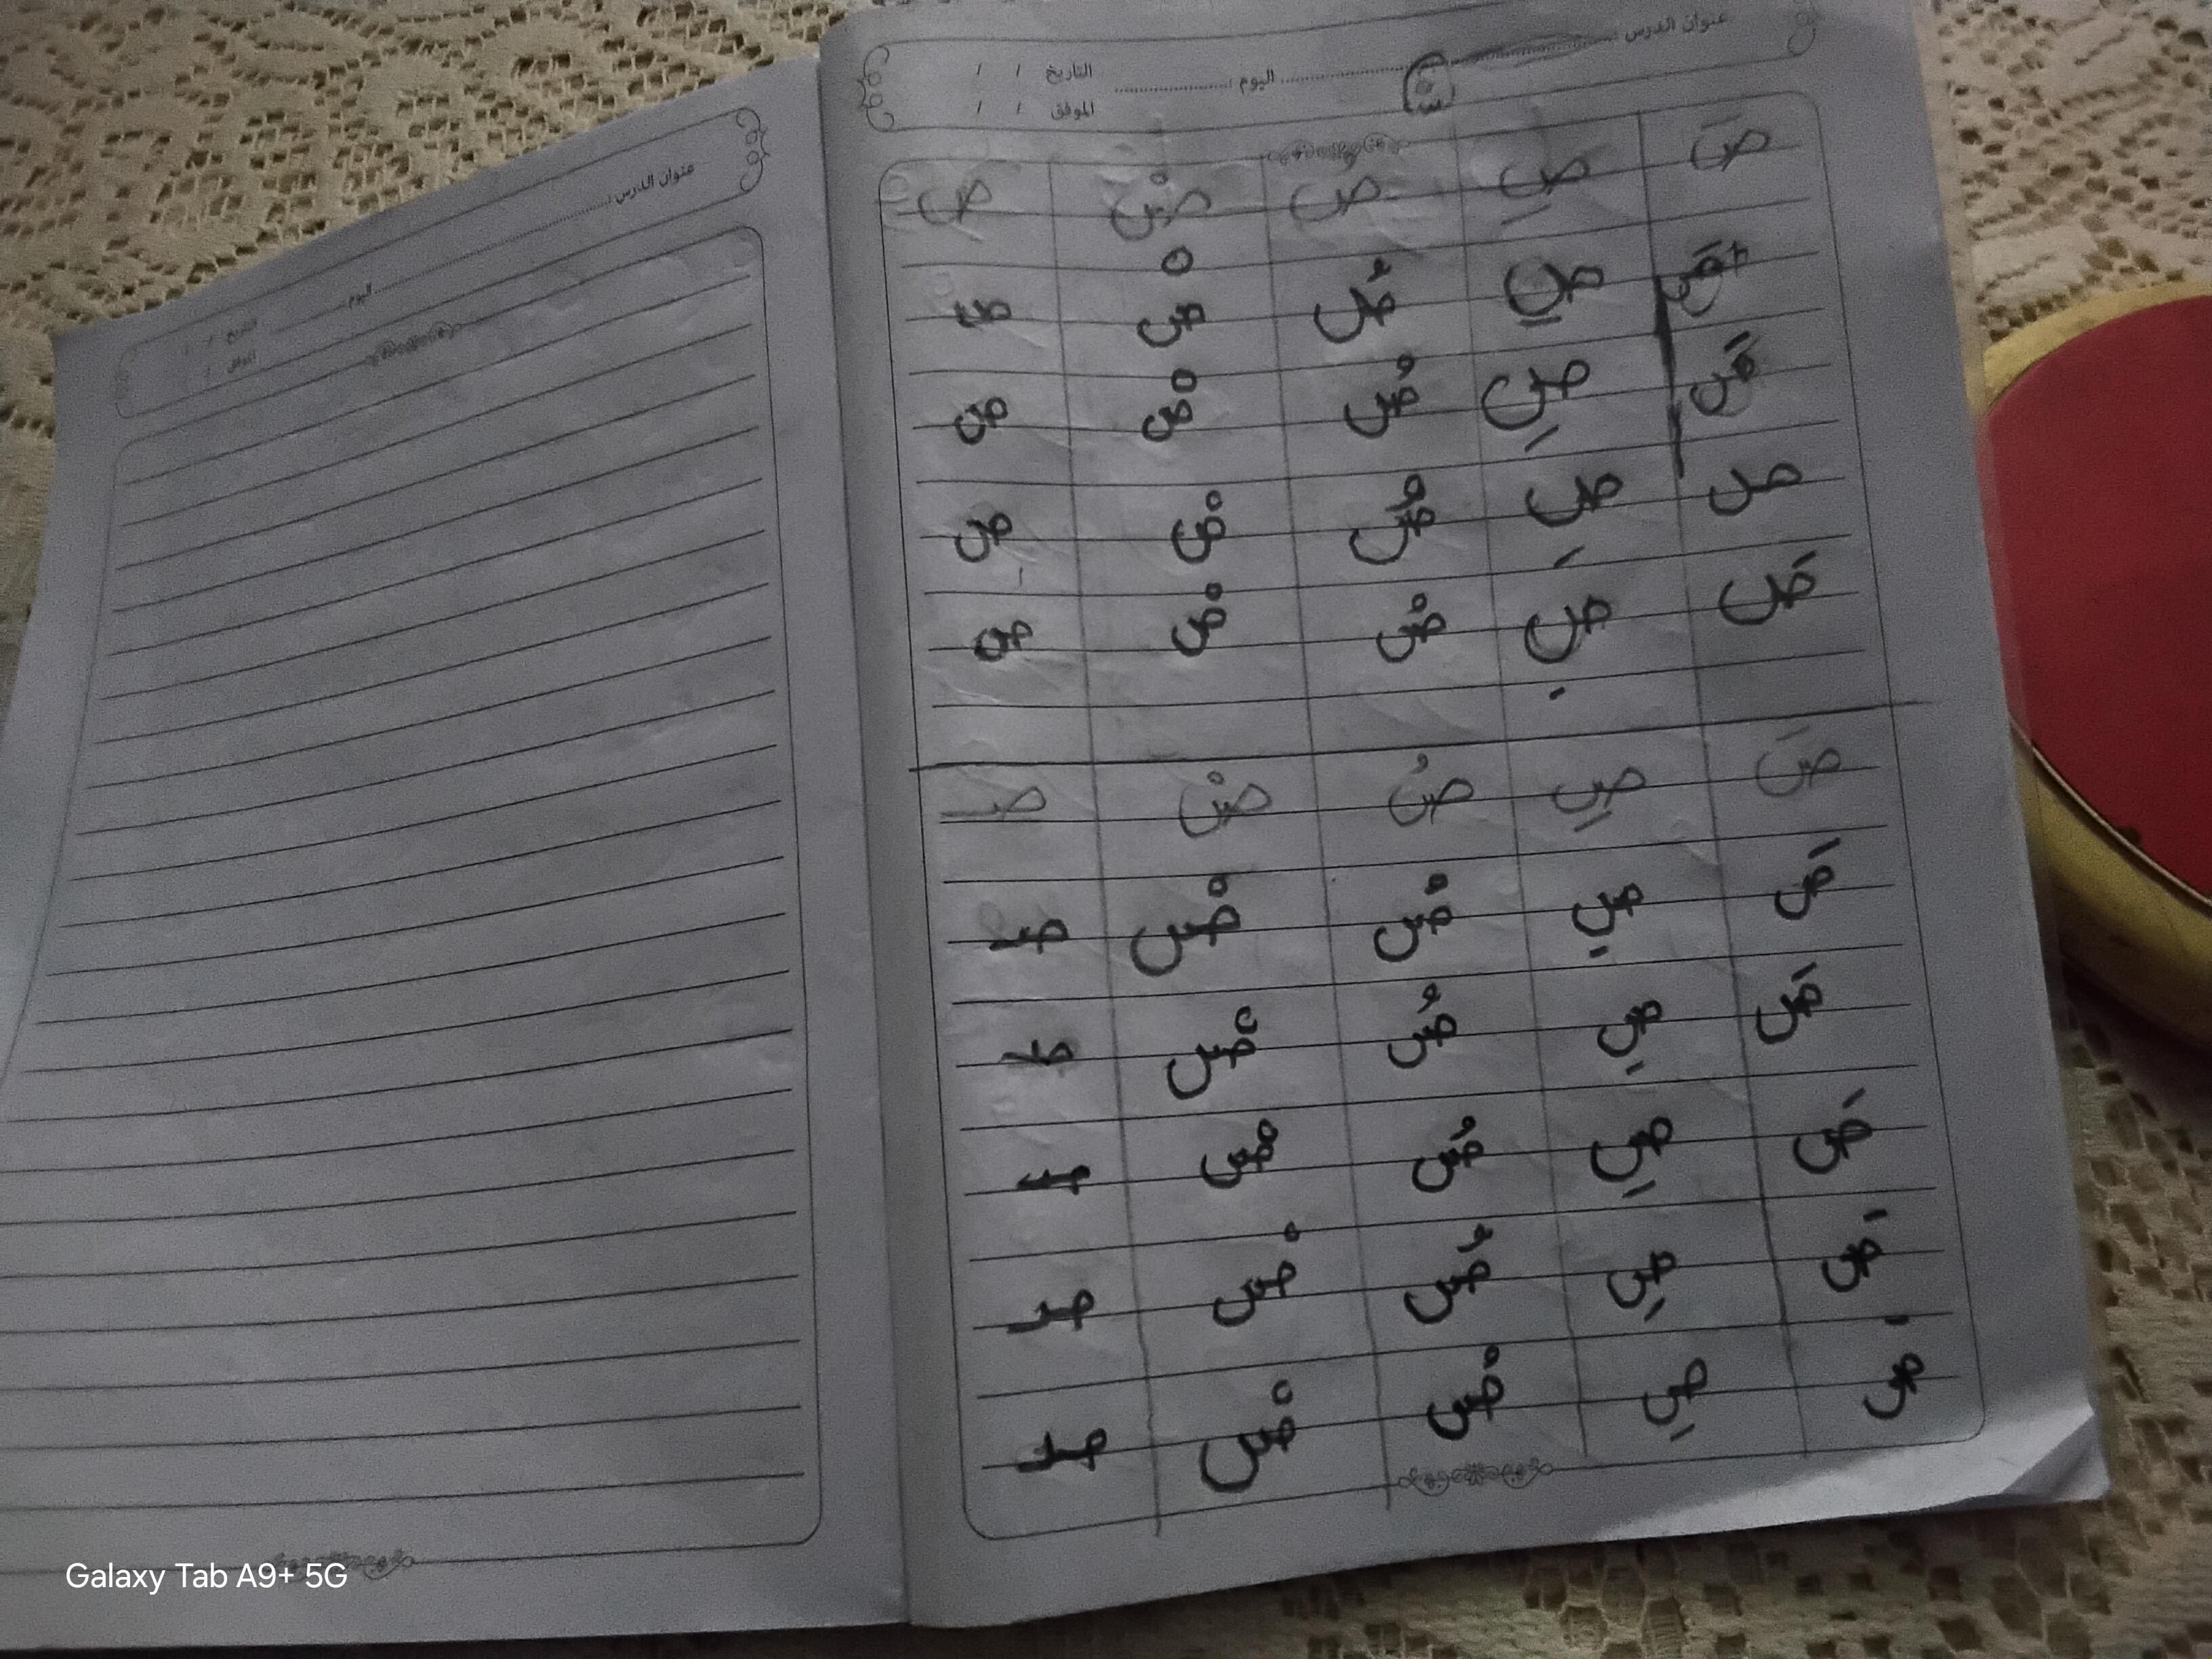 عنوان الدرس: اليوم: التاريخ / /
الموفق / /
صَ صِ صُ صْ ص
صَ صِ صُ صْ صـ
صَ صِ صُ صْ ص
ص صِ صُ صْ ص
صَ صِ صُ صْ ص
صَ صِ صُ صْ صـ
صَ صِ صُ صْ صـ
صَ صِ صُ صْ صـ
صَ صِ صُ صْ صـ
صَ صِ صُ صْ صـ
صَ صِ صُ صْ صـ
عنوان الدرس: اليوم: التاريخ / /
الموفق / /
Galaxy Tab A9+ 5G